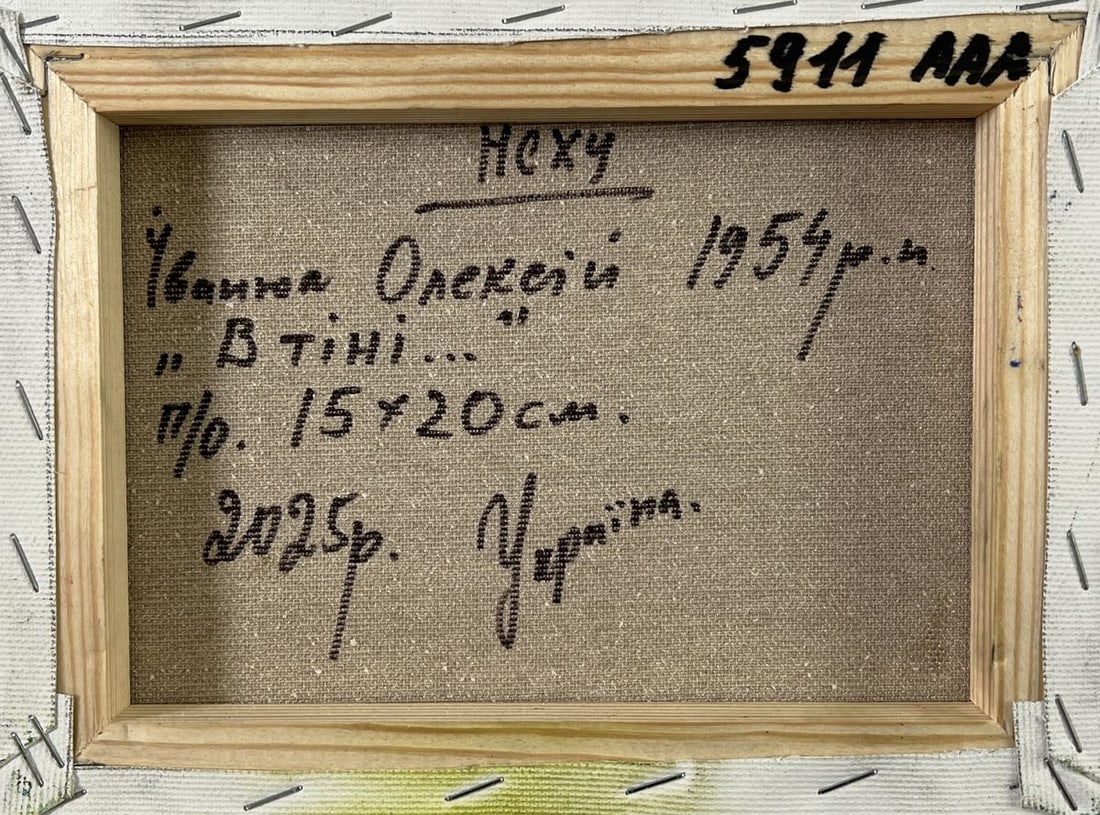 5911 AAA
НСХУ
Іванюк Олексій 1954 р.н.
„В тіні..."
п/о. 15×20 см.
2025р. Україна.